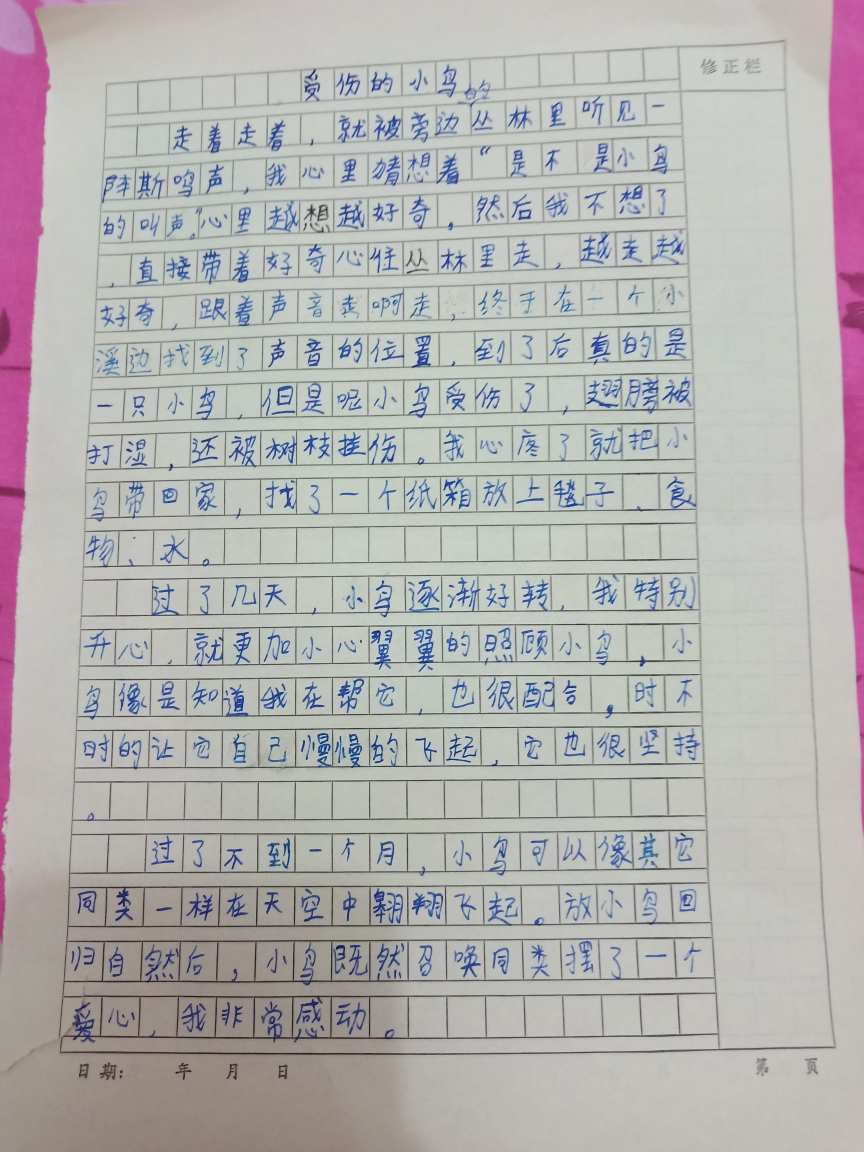 修正栏
受伤的小鸟
走着走着，就被旁边的丛林里听见一
阵斯鸣声，我心里猜想着“是不是小鸟
的叫声。”心里越想越好奇，然后我不想了
，直接带着好奇心往丛林里走，越走越
好奇，跟着声音走啊走，终于在一个小
溪边找到了声音的位置，到了后真的是
一只小鸟，但是呢小鸟受伤了，翅膀被
打湿，还被树枝挂伤。我心疼了就把小
鸟带回家，找了一个纸箱放上毯子、食
物、水。
过了几天，小鸟逐渐好转，我特别
开心，就更加小心翼翼的照顾小鸟，小
鸟像是知道我在帮它，也很配合，时不
时的让它自己慢慢的飞起，它也很坚持
。
过了不到一个月，小鸟可以像其它
同类一样在天空中翱翔飞起。放小鸟回
归自然后，小鸟既然召唤同类摆了一个
爱心，我非常感动。
日期： 年 月 日 第 页